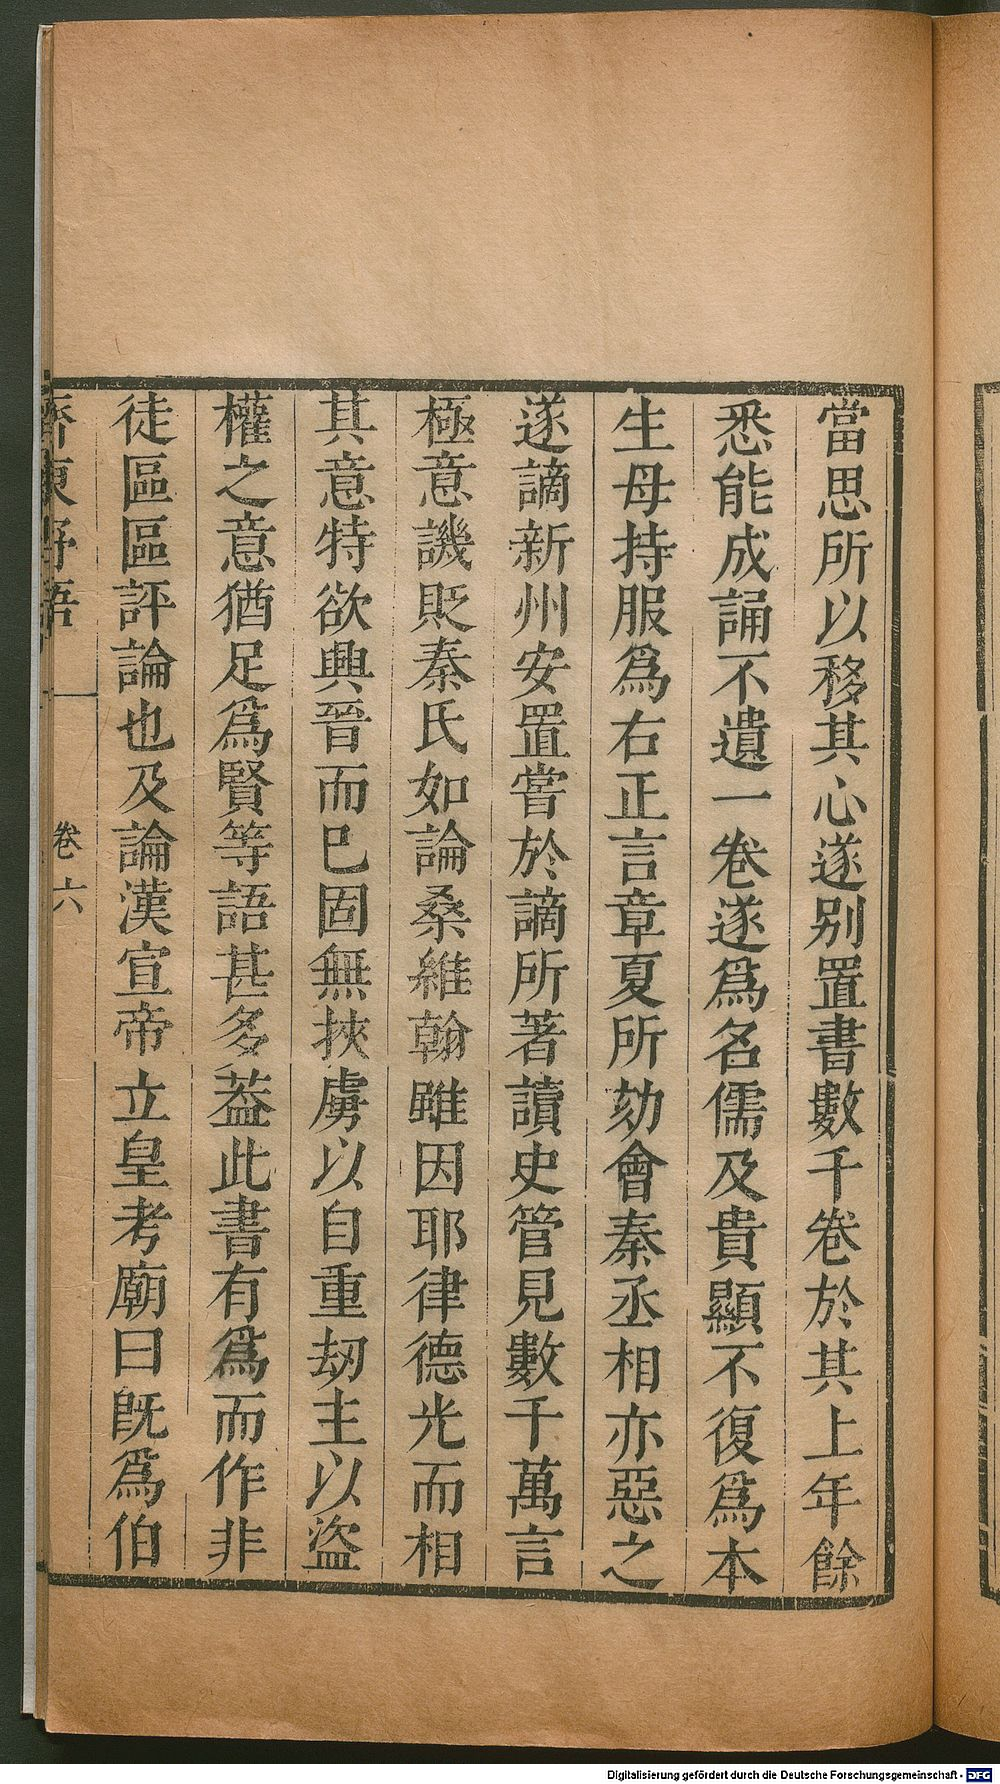 當思所以移其心遂别置書數千卷於其上年餘
悉能成誦不遺一卷遂爲名儒及貴顯不復爲本
生母持服爲右正言章夏所劾會秦丞相亦惡之
遂謫新州安置嘗於謫所著讀史管見數千萬言
極意譏貶秦氏如論桑維翰雖因耶律德光而相
其意特欲興晉而已固無挾虜以自重刼主以盜
權之意猶足爲賢等語甚多葢此書有爲而作非
徒區區評論也及論漢宣帝立皇考廟曰旣爲伯
齊東野語 卷六
Digitalisierung gefördert durch die Deutsche Forschungsgemeinschaft - DFG